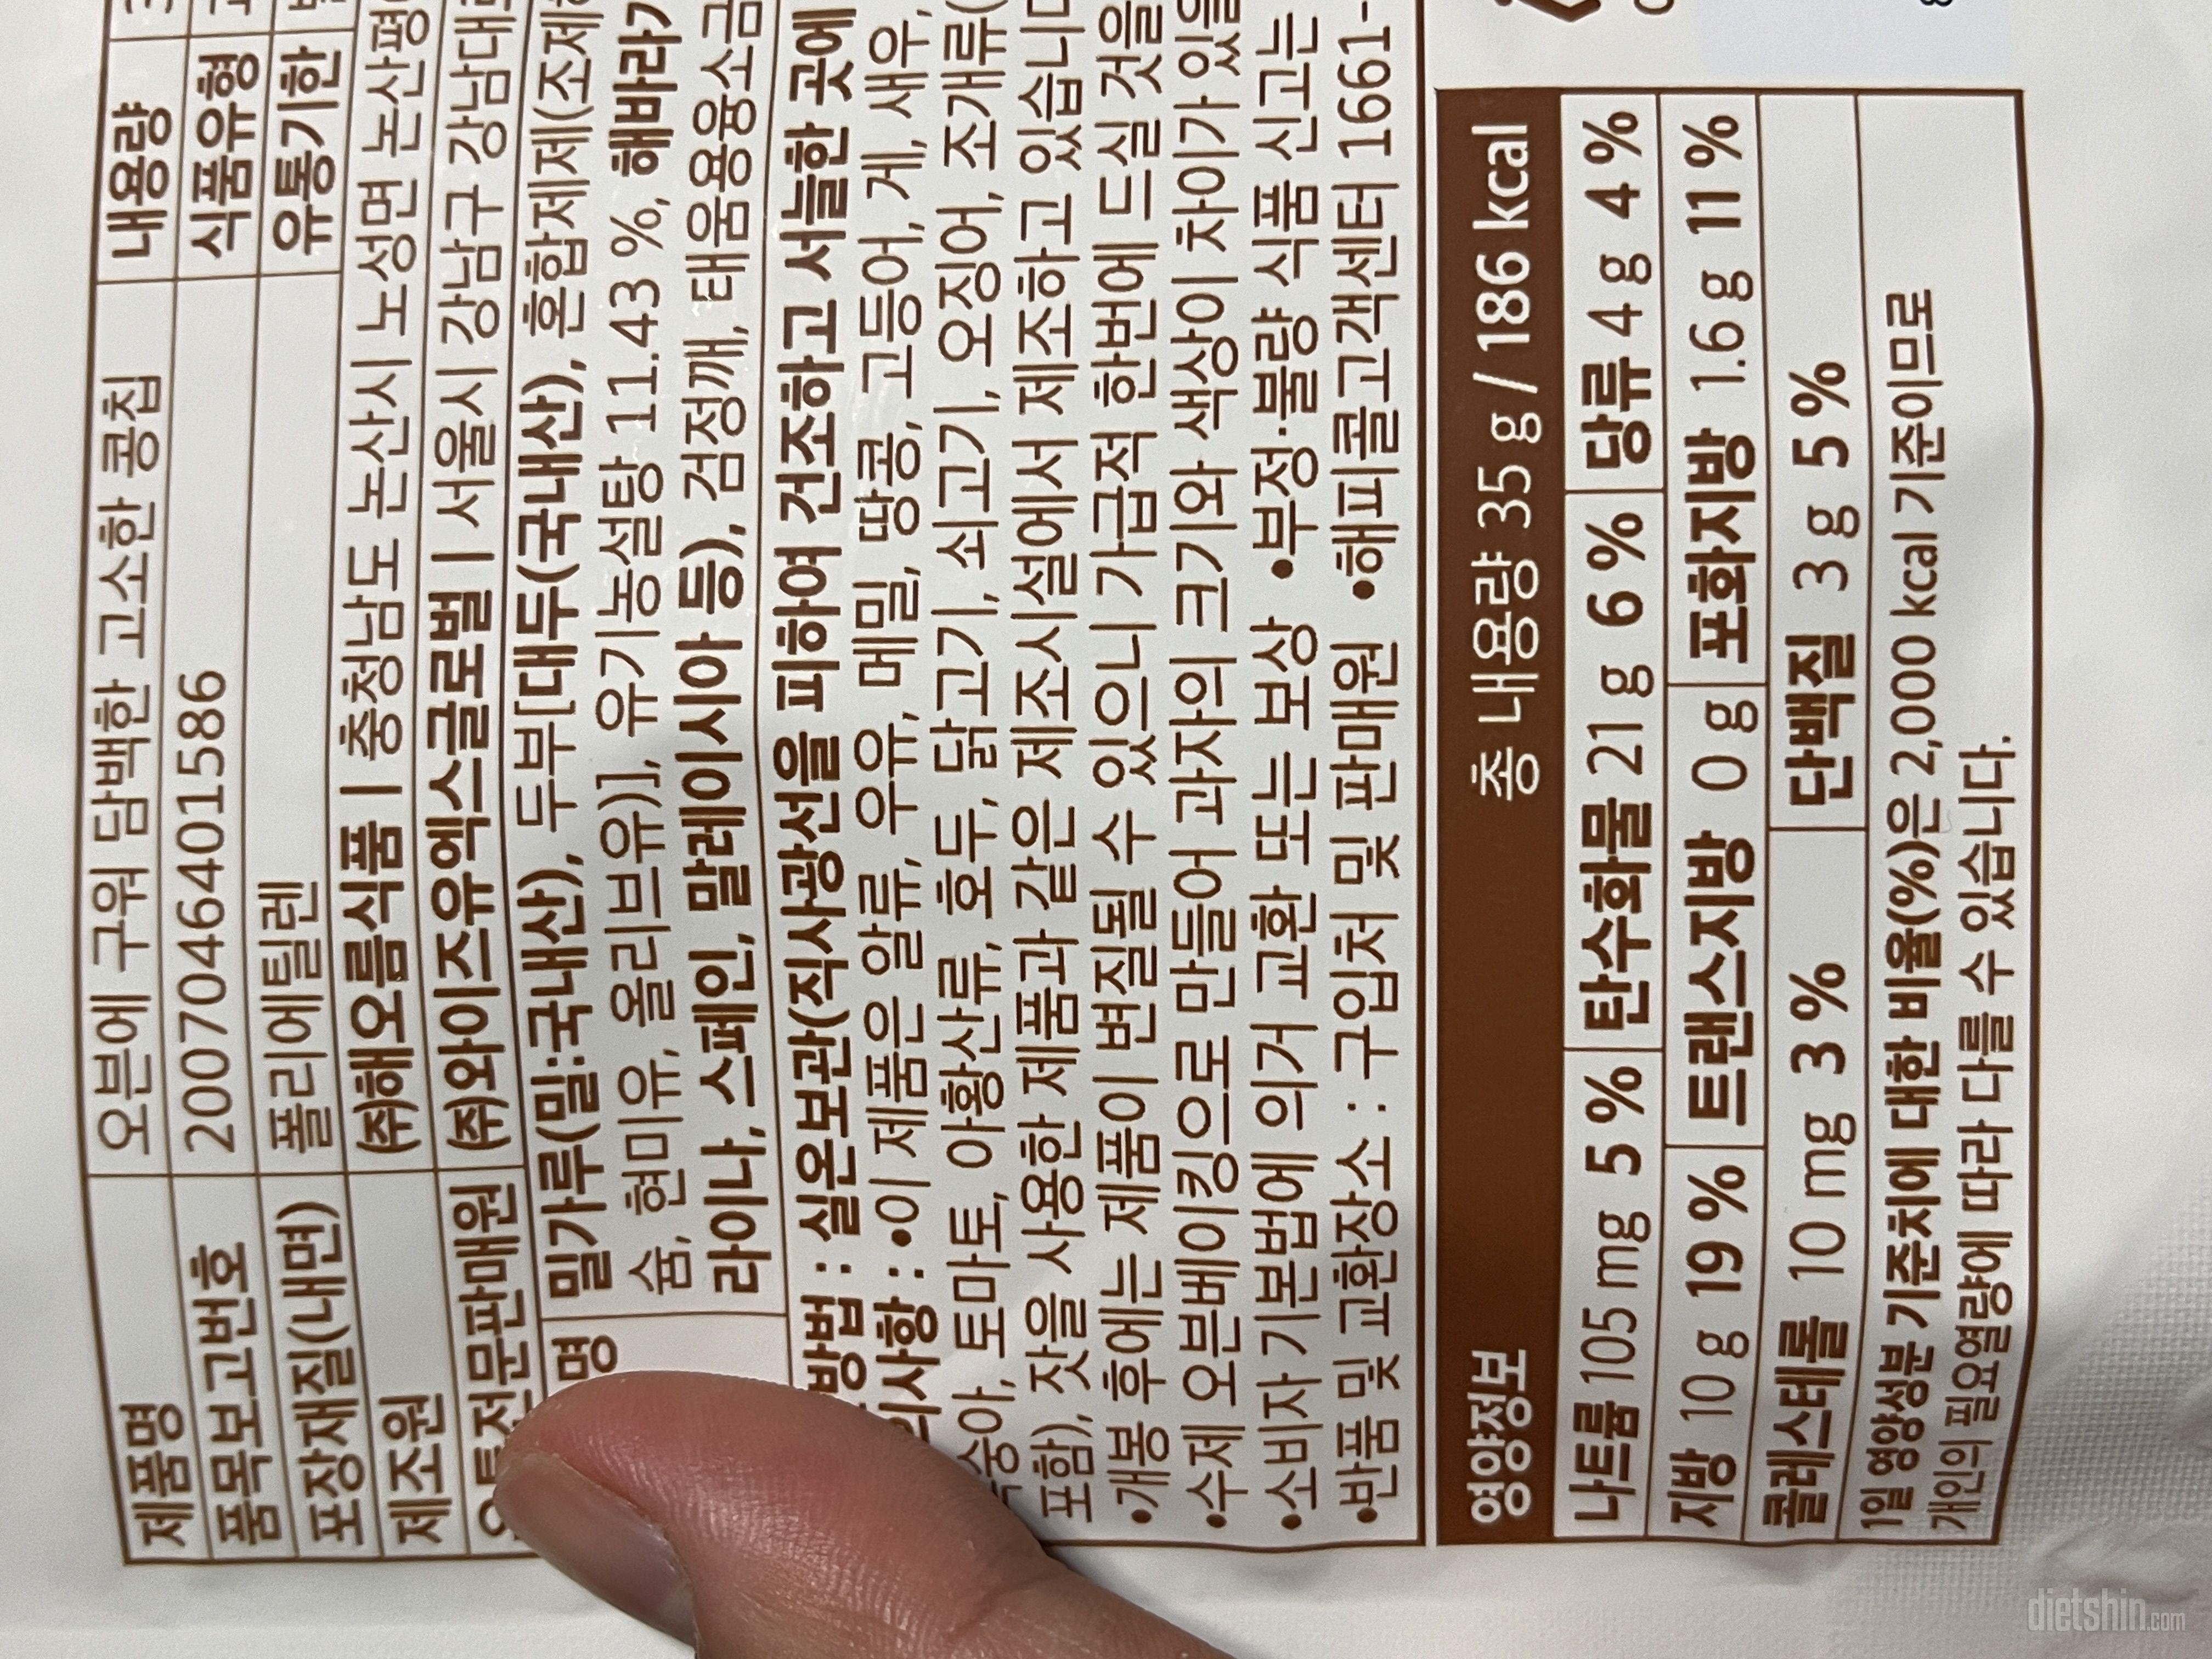 제품명 오븐에 구워 담백한 고소한 콩칩 내용량
품목보고번호 20070464401586 식품유형
포장재질(내면) 폴리에틸렌 유통기한
제조원 ㈜해오름식품 | 충청남도 논산시 노성면 논산평
유통전문판매원 ㈜와이즈유엑스글로벌 | 서울시 강남구 강남대로
명 밀가루(밀:국내산), 두부[대두(국내산), 혼합제제(조제
슘, 현미유, 올리브유)], 유기농설탕 11.43 %, 해바라기
라이나, 스페인, 말레이시아 등), 검정깨, 태움용융소금
방법 : 실온보관(직사광선을 피하여 건조하고 서늘한 곳에
의사항 : •이 제품은 알류, 우유, 메밀, 땅콩, 고등어, 게, 새우,
숭아, 토마토, 아황산류, 호두, 닭고기, 쇠고기, 오징어, 조개류(
포함), 잣을 사용한 제품과 같은 제조시설에서 제조하고 있습니다
•개봉 후에는 제품이 변질될 수 있으니 가급적 한번에 드실 것을
•수제 오븐베이킹으로 만들어 과자의 크기와 색상이 차이가 있을
•소비자 기본법에 의거 교환 또는 보상 •부정·불량 식품 신고는
•반품 및 교환장소 : 구입처 및 판매원 •해피콜고객센터 1661-
영양정보 총 내용량 35 g / 186 kcal
나트륨 105 mg 5 % 탄수화물 21 g 6 % 당류 4 g 4 %
지방 10 g 19 % 트랜스지방 0 g 포화지방 1.6 g 11 %
콜레스테롤 10 mg 3 % 단백질 3 g 5 %
1일 영양성분 기준치에 대한 비율(%)은 2,000 kcal 기준이므로
개인의 필요열량에 따라 다를 수 있습니다.
dietshin.com